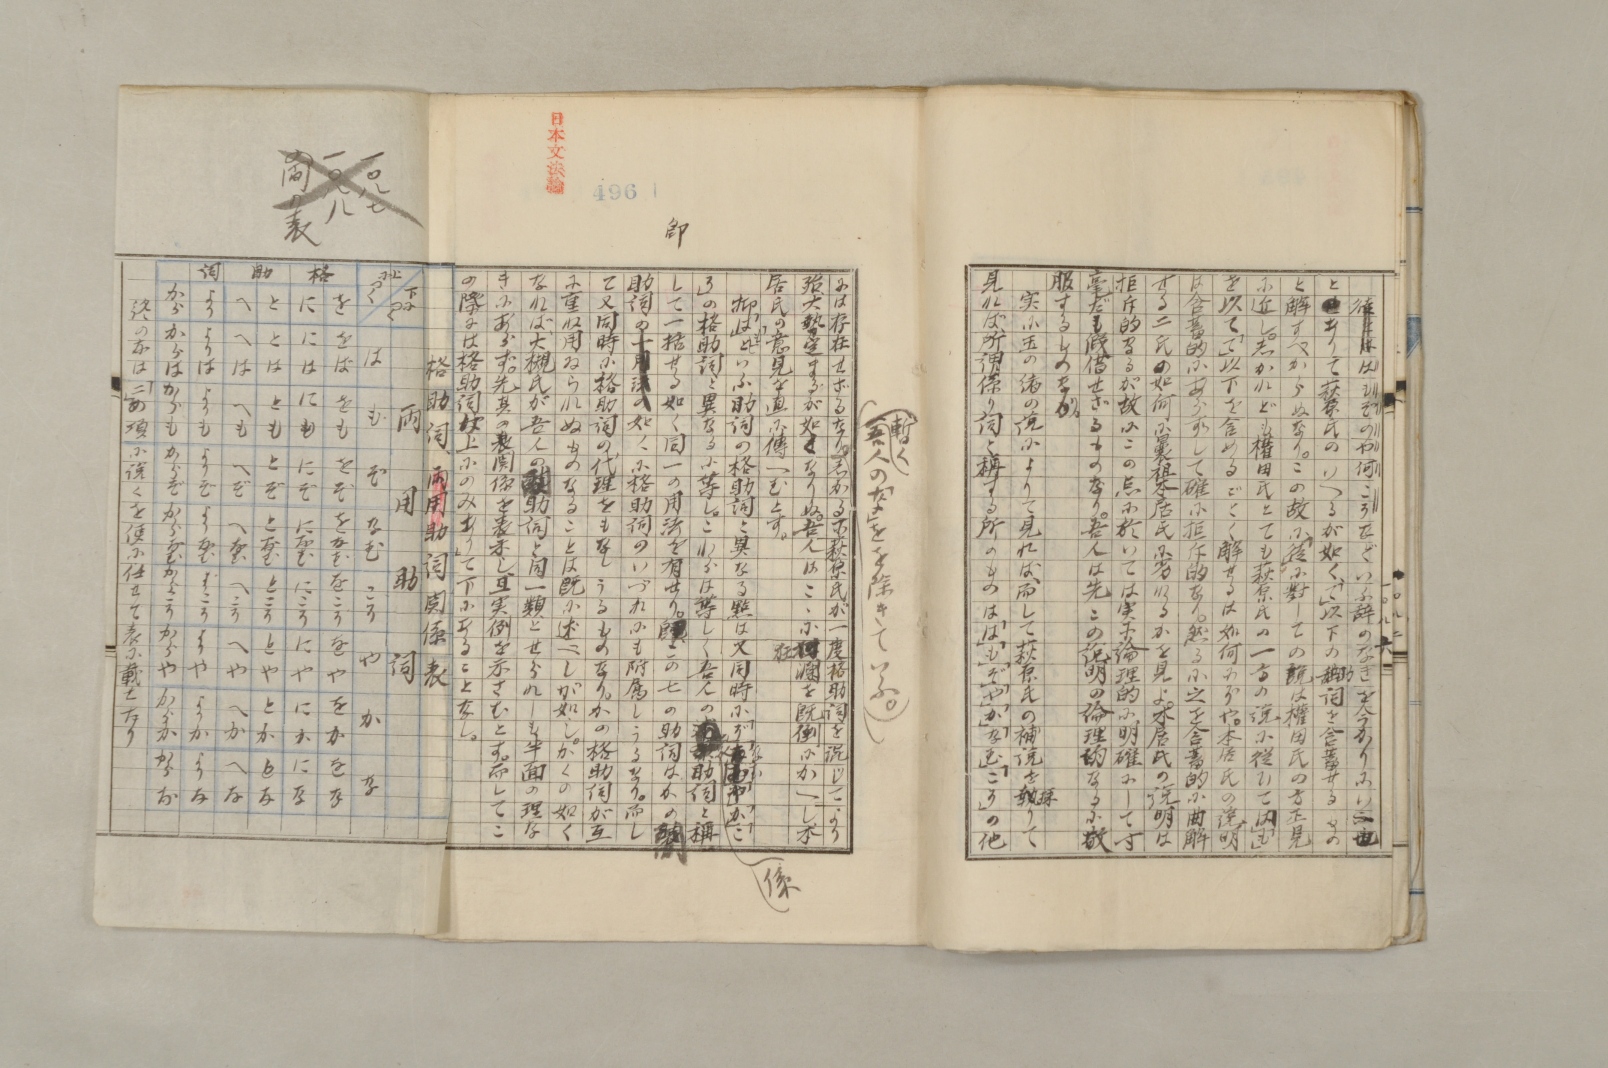 とありて萩原氏のいへるが如く「て」以下の助詞を含蓄せるもの
と解すべからぬなり。この故に徒に對しての説は權田氏の方正見
に近し。志かれども權田氏とても萩原氏の一方の説に從ひて「は」「も」
を以て「て」以下を含めるごとく解せるは如何にぞや。本居氏の説明
は含蓄的にあらずして確に拒斥的なり。然るに之を含蓄的に曲解
せる二氏の如何に曩祖本居氏に劣れるかを見よ。本居氏の説明は
拒斥的なるが故にこの点に於いては実に論理的に明確にして寸
毫だも假借せざるものなり。吾人は先この説明の論理的なるに敬
服するものなり。
実に玉の緒の説によりて見れば、而して萩原氏の補説を採りて
見れば所謂係り詞と稱する所のものは「は」「も」「ぞ」「や」「か」「なむ」「こそ」の他
一〇八六
日本文法論
496
印
には存在せざるなり。志かるに萩原氏が一度格助詞を混じてより
強大勢を逞するが如くなりぬ。吾人はここに狂瀾を既倒にかへし本
居氏の意見を直に傳へむとす。
暫く
(吾人の「な」を除きていふ。)
抑「は」といふ助詞の格助詞と異なる點は又同時に「ぞ」「なむ」「や」「か」「こ
そ」の格助詞と異なるに等し。これらは等しく吾人の係助詞と稱
係
して一括せる如く同一の用法を有せり。この七の助詞はかの
助詞の一用法の如くに格助詞のいづれにも附属しうるなり。而し
て又同時に格助詞の代理をもなしうるものなり。かの格助詞が互
に重ね用ゐられぬものなることは既に述べしが如し。かくの如く
なれば大槻氏が吾人の助詞と同一類とせられしも半面の理な
きにあらず。先其の関係を表示し且実例を示さむとす。而してこ
の際には格助詞は上にのみありて下にあることなし。
格助詞、両用助詞関係表
両用助詞
一〇八七
一〇八八
の間の表
下につく
上につく
は も ぞ なむ こそ や か な
格助詞
を をば をも をぞ をなむ をこそ をや をか をな
に には にも にぞ になむ にこそ にや にか にな
と とは とも とぞ となむ とこそ とや とか とな
へ へは へも へぞ へなむ へこそ へや へか へな
より よりは よりも よりぞ よりなむ よりこそ よりや よりか よりな
から からは からも からぞ からなむ からこそ からや からか からな
終の「な」は二の項に説くを便に仕せて表に載せたり